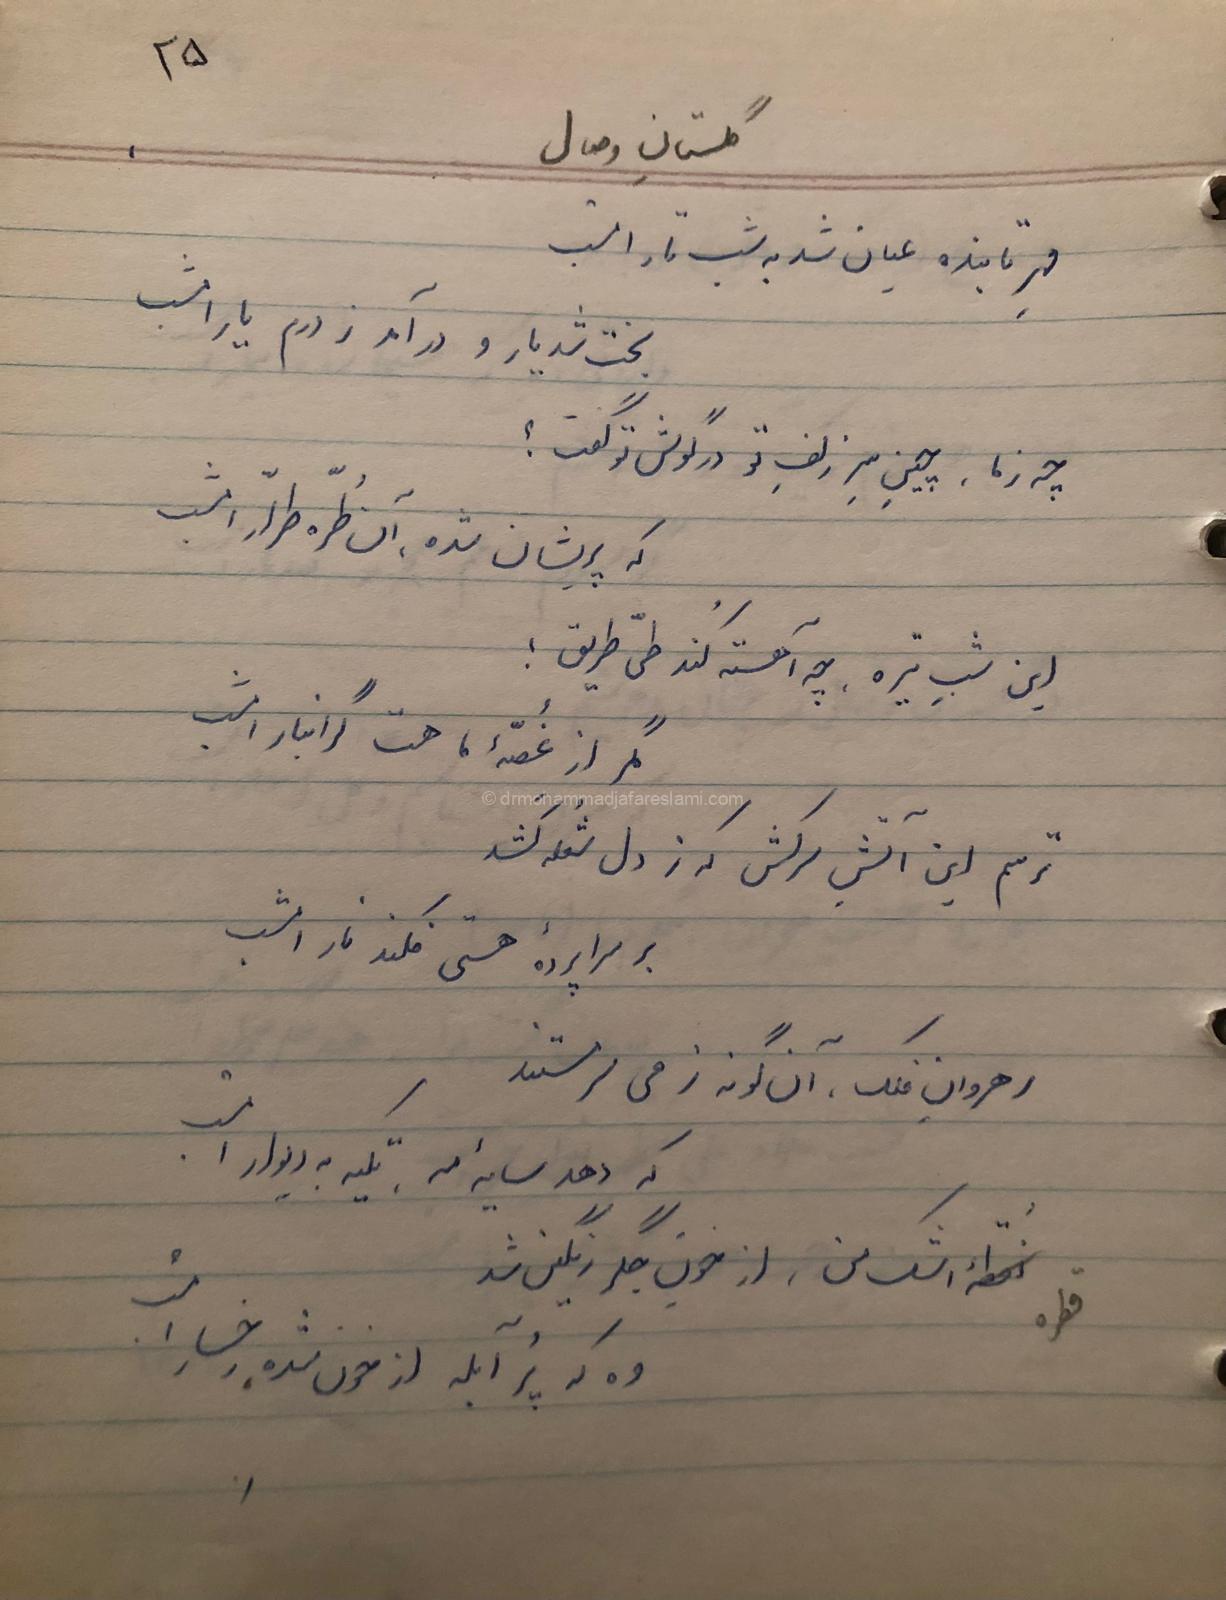 ۲۵
گلستانِ وصال
مهرِ تابنده عیان شد به شب تار امشب
بخت شد یار و درآمد ز درم یار امشب
چه ز ما، چینِ سرِ زلفِ تو در گوش تو گفت؟
که پریشان شده، آن طُرّه طرّار امشب
این شبِ تیره، چه آهسته کُند طیّ طریق!
مگر از غُصّهٔ ما هست گرانبار امشب
© drmohammadjafareslami.com
ترسم این آتشِ سرکش که ز دل شُعله کشد
بر سراپردهٔ هستی فکند نار امشب
رهروانِ فلک، آن گونه ز می سرمستند
که دهد سایهٔ مه، تکیه به دیوار امشب
اشک من، از خونِ جگر رنگین شد
قطره
وه که پُر آبله از خون شده، رخسار امشب